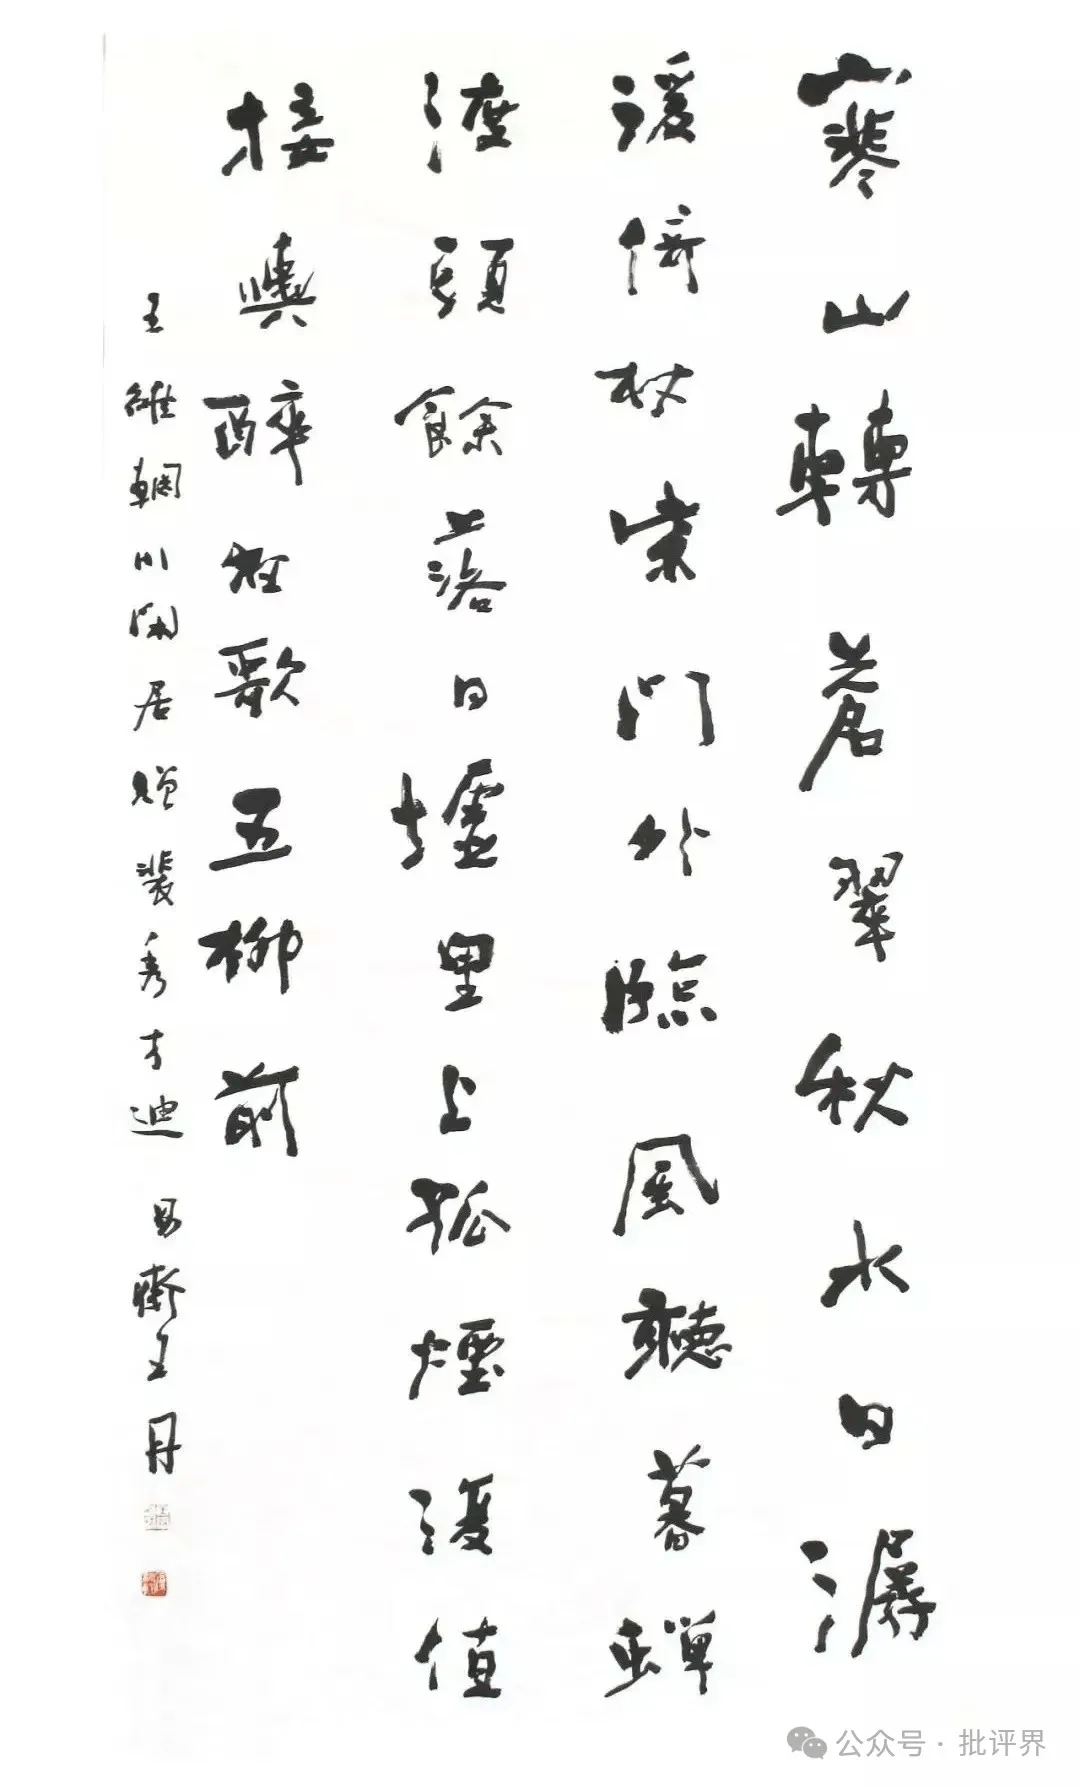 寒山轉蒼翠秋水日潺
湲倚杖柴門外臨風聽暮蟬
渡頭餘落日墟里上孤煙復值
接輿醉狂歌五柳前
王維輞川閑居贈裴秀才迪 王丹
公众号 · 批评界